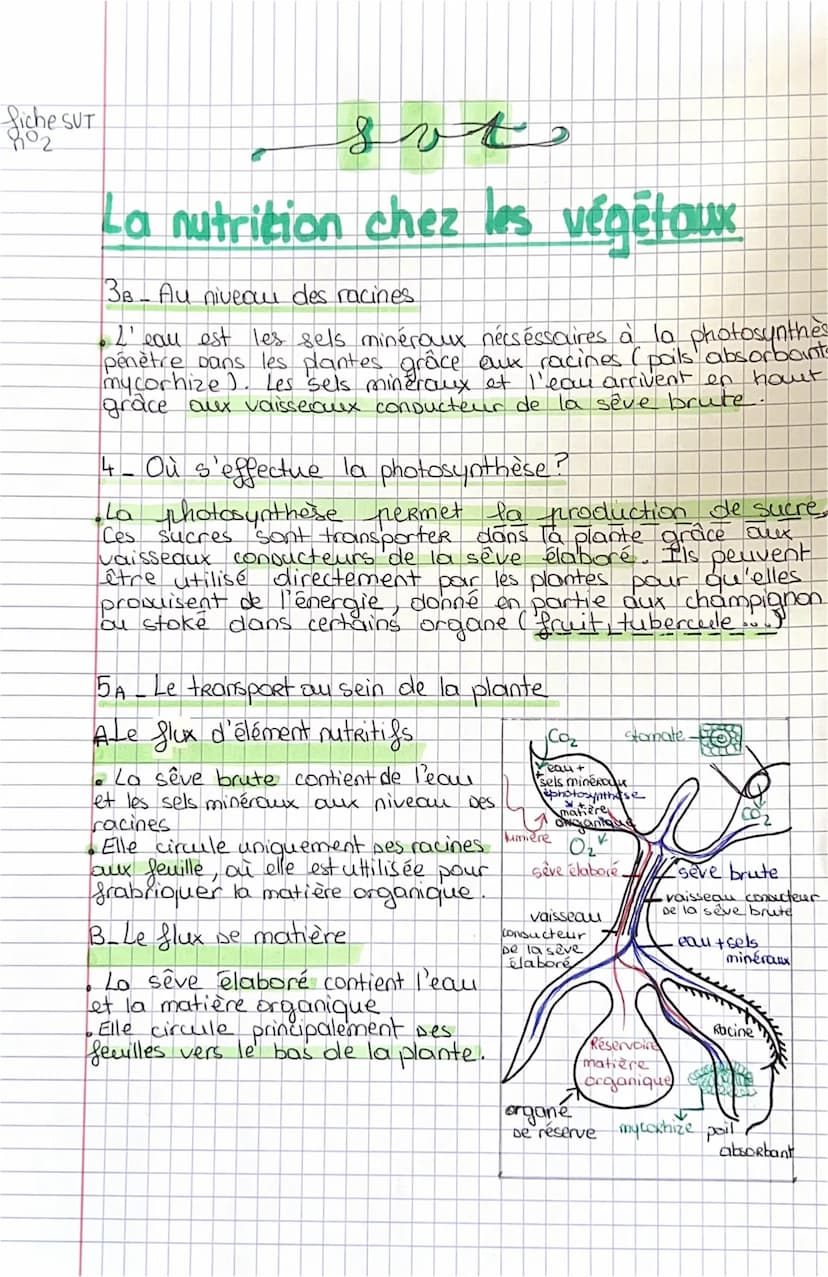 fiche SVT
n°2
svt
La nutrition chez les végétaux
3B - Au niveau des racines
. L'eau est les sels minéraux nécséssaires à la photosynthès
pénètre dans les plantes grâce aux racines (poils absorbants
mycorhize). Les sels minéraux et l'eau arrivent en haut
grâce aux vaisseaux conducteur de la sêve brute.
4 - Où s'effectue la photosynthèse ?
. La photosynthèse permet la production de sucre,
Ces sucres sont transporter dans la plante grâce aux
vaisseaux conducteurs de la sêve élaboré. Ils peuvent
être utilisé directement par les plantes pour qu'elles
produisent de l'énergie, donné en partie aux champignon
ou stoké dans certains organe (fruit, tubercule...)
5A - Le transport au sein de la plante
A Le flux d'élément nutritifs
. La sêve brute contient de l'eau
et les sels minéraux aux niveau des
racines
. Elle circule uniquement des racines
aux feuille, où elle est uttilisée pour
frabriquer la matière organique.
B - Le flux de matière
. La sêve élaboré contient l'eau
et la matière organique
. Elle circule principalement des
feuilles vers le bas de la plante.
CO2
stomate
eau +
sels minéraux
photosynthèse
+
matière
organique
lumière
O2
CO2
sêve élaboré
sêve brute
vaisseau conducteur
de la sêve brute
vaisseau
conducteur
de la sêve
élaboré
eau + sels
minéraux
Racine
Réservoire
matière
organique
organe
de réserve
mycorhize
poil
absorbant